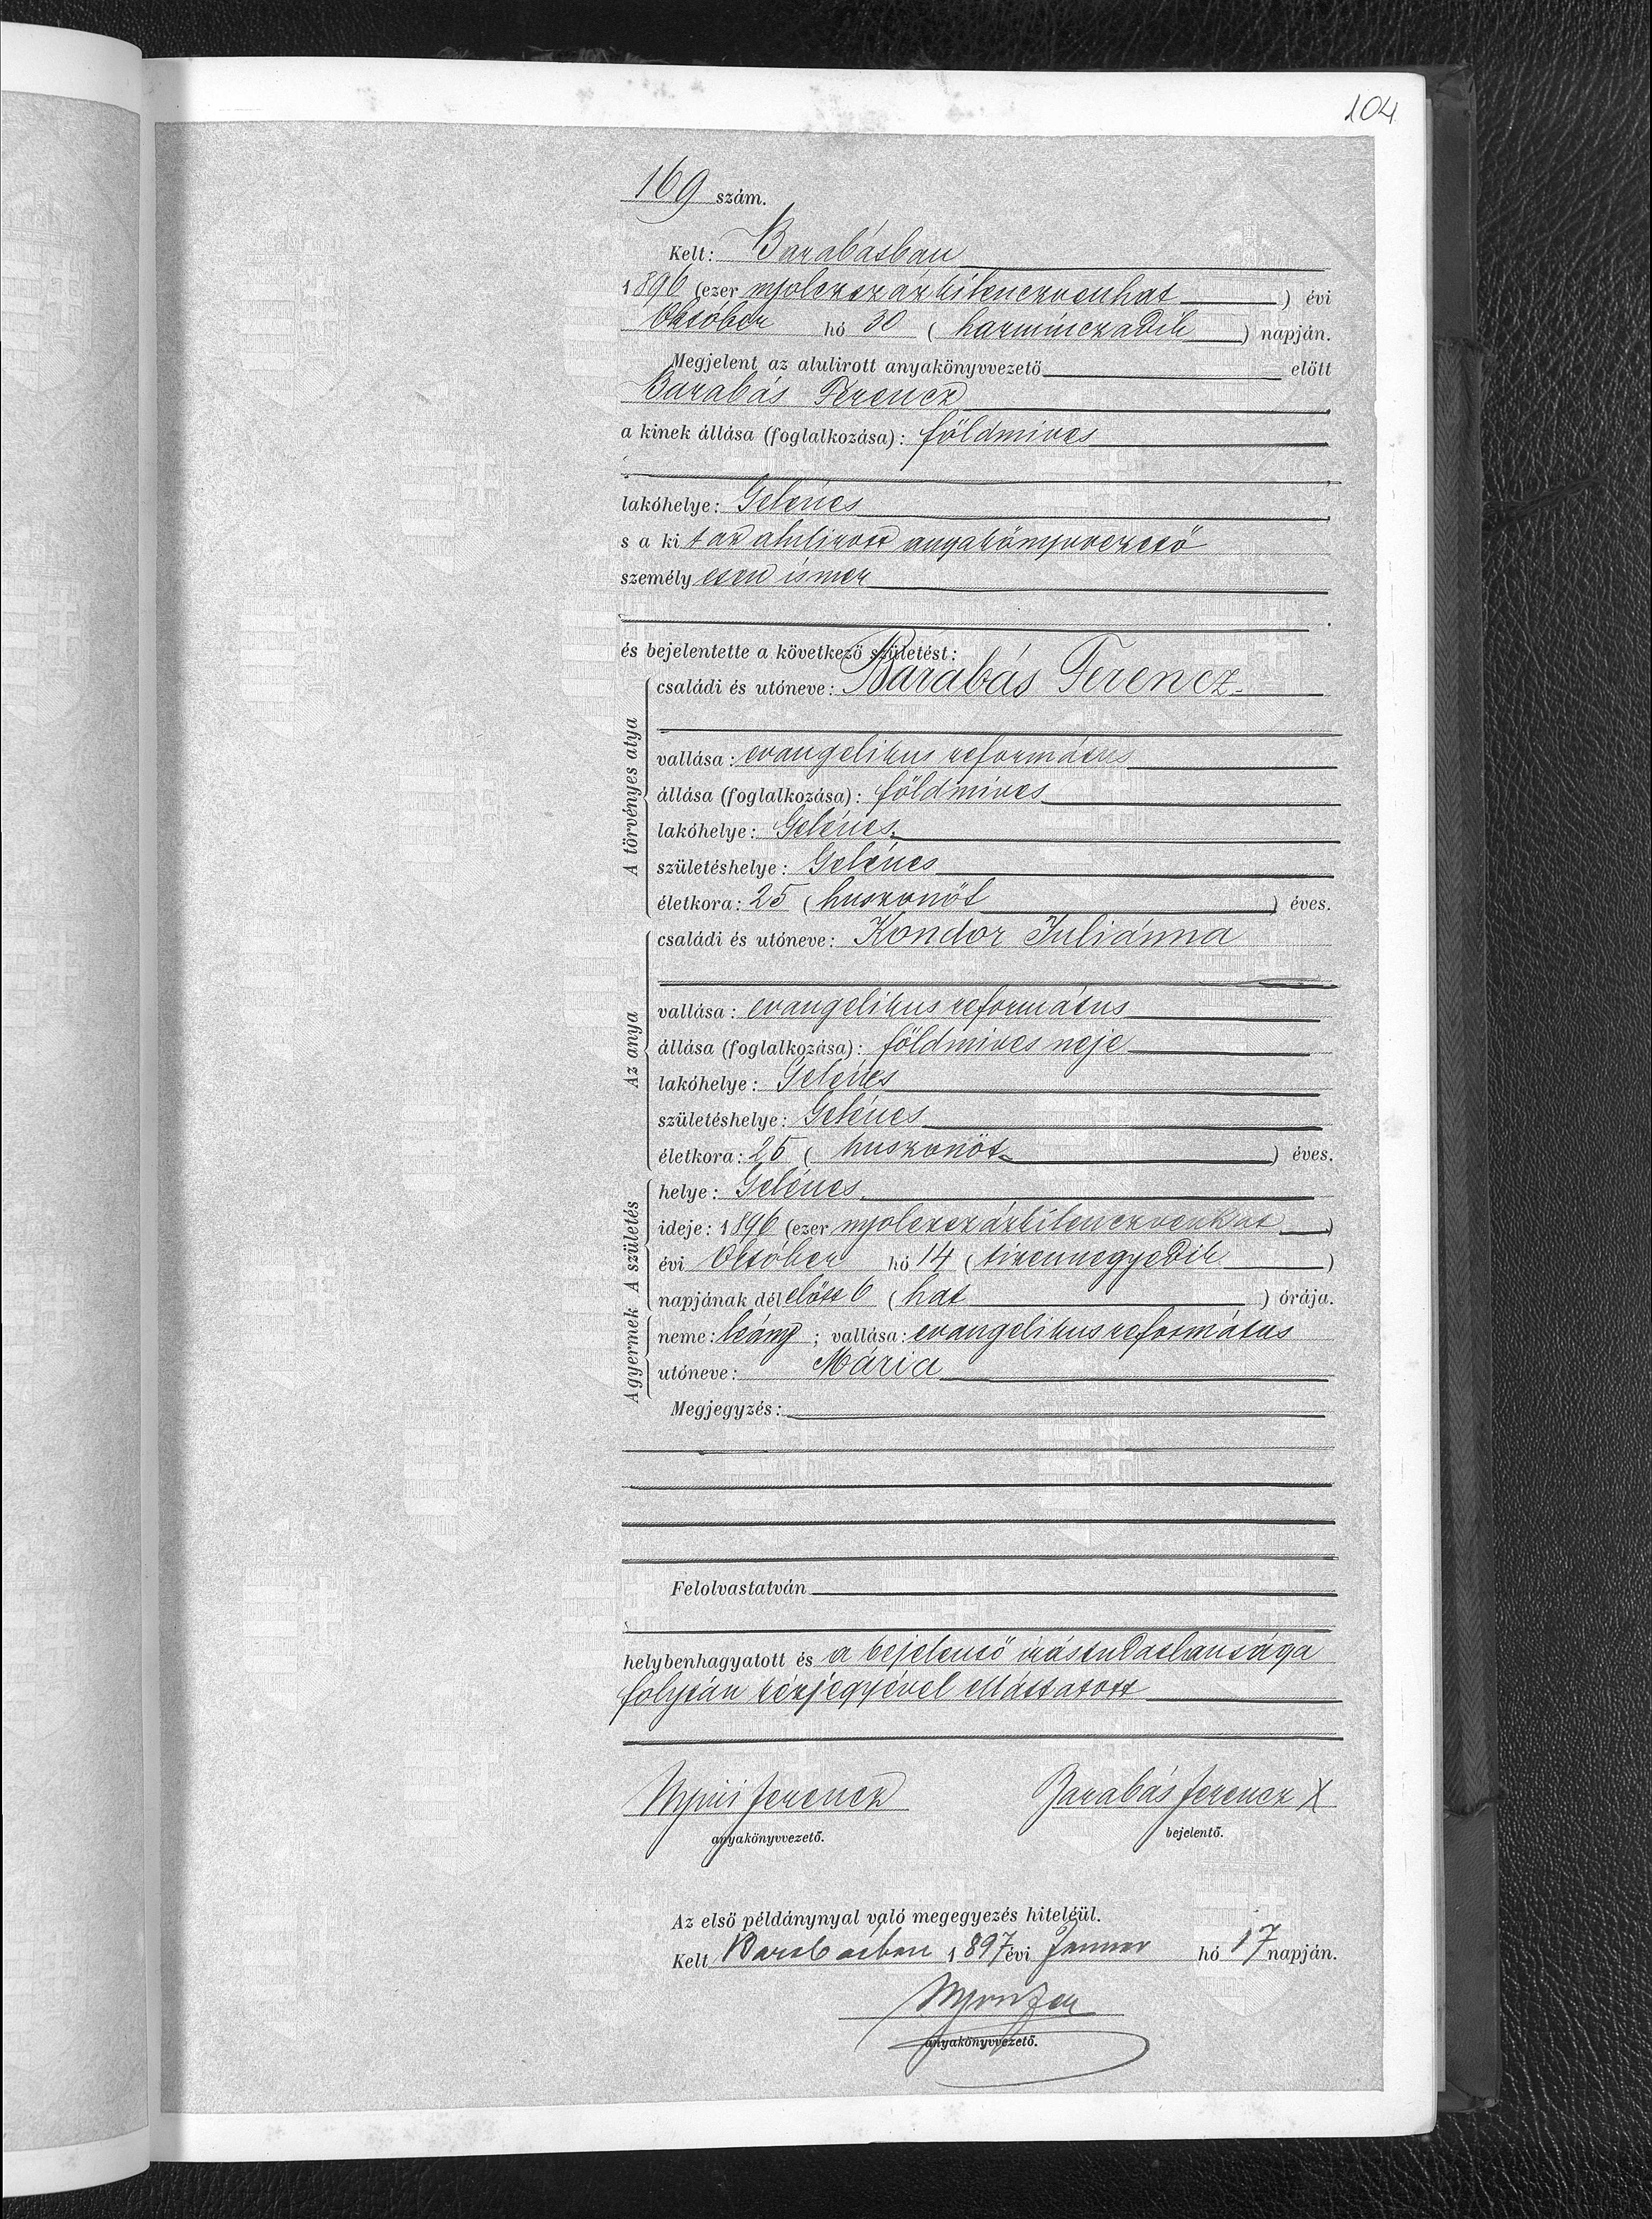 104
169 szám.
Kelt: Barabásban
1896 (ezer nyolczszázkilenczvenhat) évi
Október hó 30 (harminczadik) napján.
Megjelent az alulirott anyakönyvvezető előtt
Barabás Ferencz
a kinek állása (foglalkozása): földmives
lakóhelye: Gelénes
s a kit az alulirott anyakönyvvezető
személyesen ismer
és bejelentette a következő születést:
A törvényes atya
családi és utóneve: Barabás Ferencz
vallása: evangelikus református
állása (foglalkozása): földmives
lakóhelye: Gelénes
születéshelye: Gelénes
életkora: 25 (huszonöt) éves.
Az anya
családi és utóneve: Kondor Juliánna
vallása: evangelikus református
állása (foglalkozása): földmives neje
lakóhelye: Gelénes
születéshelye: Gelénes
életkora: 25 (huszonöt) éves.
A születés
helye: Gelénes
ideje: 1896 (ezer nyolczszázkilenczvenhat)
évi Október hó 14 (tizennegyedik)
napjának délelőtt 6 (hat) órája.
A gyermek
neme: leány; vallása: evangelikus református
utóneve: Mária
Megjegyzés:
Felolvastatván
helybenhagyatott és a bejelentő irástudatlansága
folytán kézjegyével elláttatott
Nyiri Ferencz Barabás Ferencz X
anyakönyvvezető. bejelentő.
Az első példánynyal való megegyezés hiteléül.
Kelt Barabásban 1897 évi Januar hó 17 napján.
anyakönyvvezető.